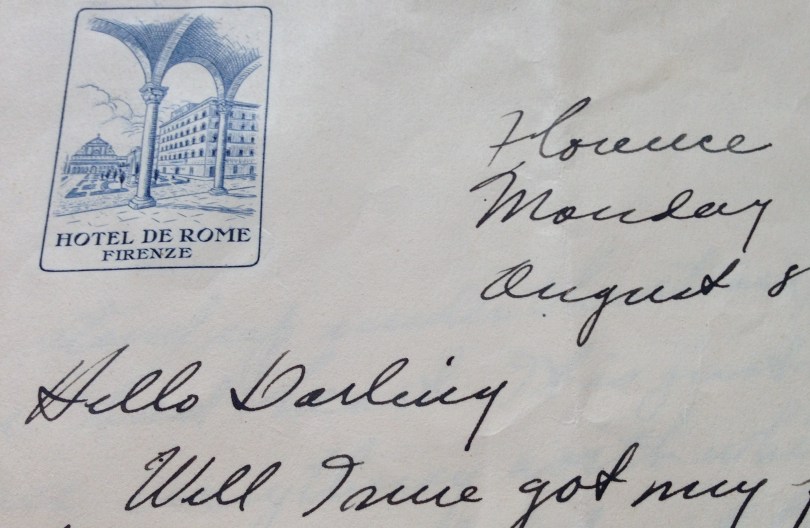 HOTEL DE ROME
FIRENZE
Florence
Monday
August 8
Hello Darling
Well I've got my